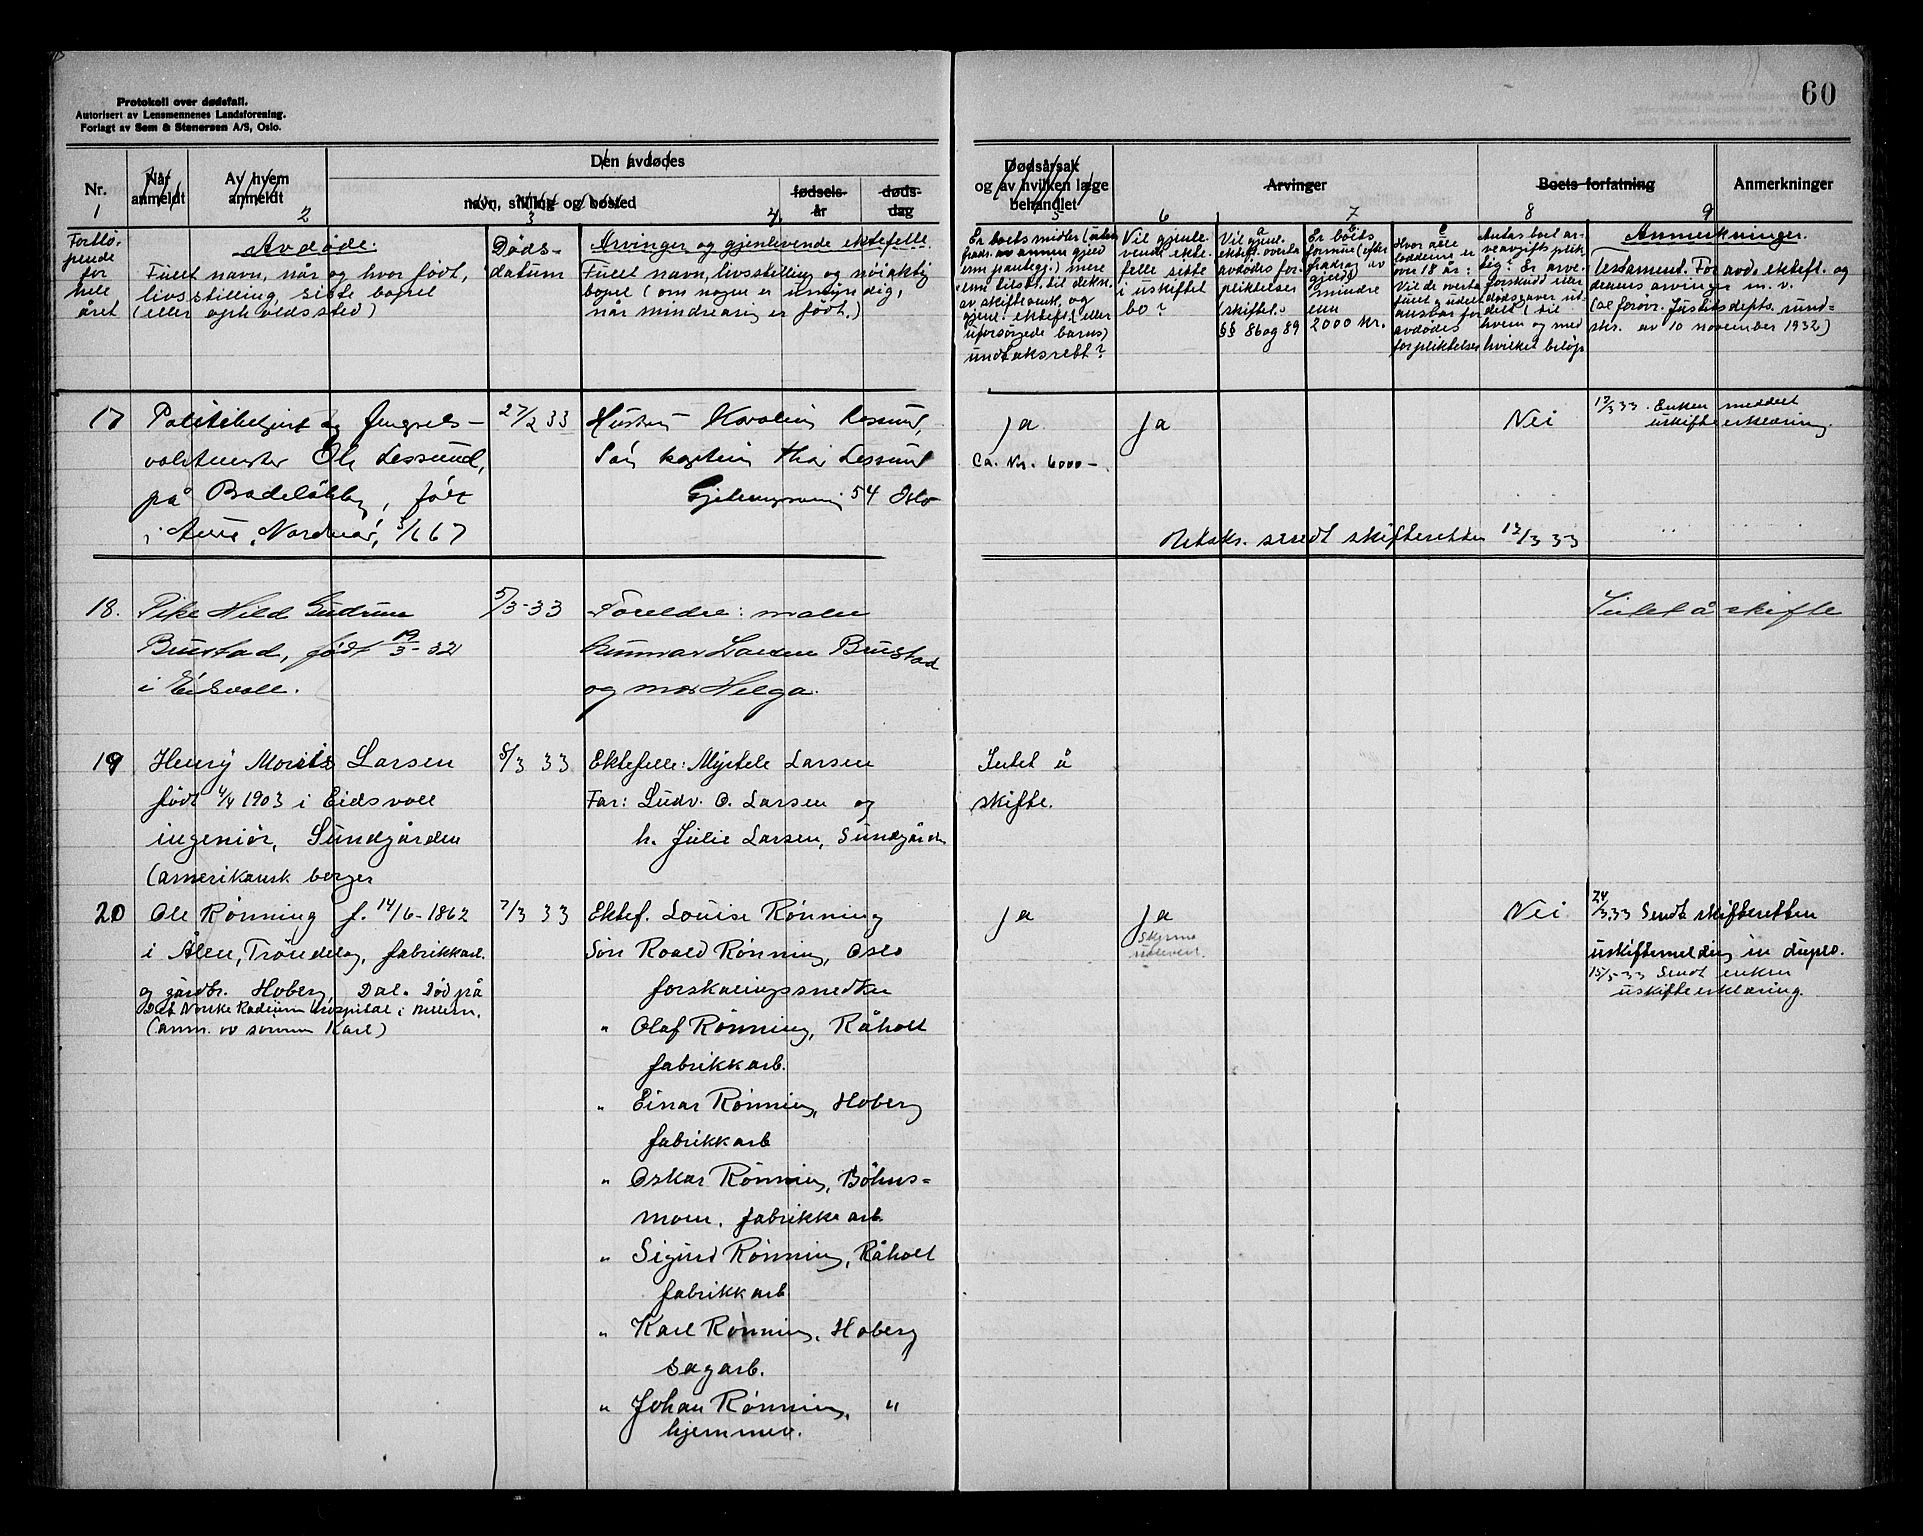 60
Protokoll over dødsfall.
Autorisert av Lensmennenes Landsforening.
Forlagt av Sem & Stenersen A/S, Oslo.
Nr.
Når anmeldt
Av hvem anmeldt
Den avdødes
navn, stilling og bosted
fødsels-
år
døds-
dag
Dødsårsak
og av hvilken læge
behandlet
Arvinger
Boets forfatning
Anmerkninger
1 2 3 4 5 6 7 8 9
Fortlø-
pende
for
hele
året
Avdøde:
Fullt navn, når og hvor født,
livsstilling, siste bopel
(eller opholdssted)
Døds-
datum
Arvinger og gjenlevende ektefelle.
Fullt navn, livsstilling og nøiaktig
bopel (om nogen er umyndig,
når mindreårig er født.)
Er boets midler (uten
fradr. av annen gjeld
enn pantegj.) mere
enn tilstr. til dekn.
av skifteomk. og
gjenl. ektef. (eller
uforsørgede barns)
undtaksrett?
Vil gjenle-
vende ekte-
felle sitte
i uskiftet
bo?
Vil gjenl.
ektef. overta
avdødes for-
pliktelser
(skiftel.
§§ 86 og 89
Er boets
formue (efter
fradrag av
gjeld)
mindre
enn
2000 kr.
Hvor alle
loddeiere er
over 18 år:
Vil de overta
fullt og udelt
ansvar for
avdødes
forpliktelser
Antas boet ar-
veavgiftsplik-
tig? Er arve-
forskudd eller
dødsgaver ut-
delt (til
hvem og med
hvilket beløp
Anmerkninger.
Testament. For avd. ektef. og
dennes arvinger m. v.
(Se forøv. Justisdepts. rund-
skr. av 10 november 1932)
17
Politibetjent og fengsels-
vaktmester Ole Lessund,
på Badeløkka, født
i Aure, Nordmør, 5/6 67
27/2 33
Hustru Karolin Lessund,
Søn kaptein Thor Lessund
Gjetemyrsvei 54 Oslo
ja
Ca. Kr. 6000-
ja
Nei
17/3 33. Enken meddelt
uskifteerklæring.
sendt skifteretten 17/3 33
18.
Pike Hild Gudrun
Bustad, født 19/3-32
i Eidsvoll.
5/3-33
Foreldre: maler
Gunnar Larsen Bustad
og mor Helga.
Intet å skifte
19
Henry Morits Larsen
født 4/4 1903 i Eidsvoll
ingeniør, Sundgården
(amerikansk borger
8/3 33
Ektefelle: Myrtele Larsen
Far: Ludv. O. Larsen og
h. Julie Larsen, Sundgården
Intet å
skifte.
20
Ole Rønning f. 14/6-1862
i Ålen, Trøndelag, fabrikkarb.
og gårdbr. Hoberg Dal. Død på
Det Norske Radium Hospital i Aker.
(anm. av sønnen Karl)
7/3 33
Ektef. Louise Rønning
Søn Roald Rønning, Oslo
forskalingssnedker
" Olaf Rønning, Råholt
fabrikkarb.
" Einar Rønning, Hoberg
fabrikkarb
" Oskar Rønning, Bøhns-
moen, fabrikkarb.
" Sigurd Rønning, Råholt
fabrikkarb
" Karl Rønning, Hoberg
sagarb.
" Johan Rønning, "
hjemmev.
ja
ja
Skjema
utlevert.
Nei
24/3 33 Sendt skifteretten
uskiftemelding in duplo.
15/5-33 Sendt enken
uskifteerklæring.